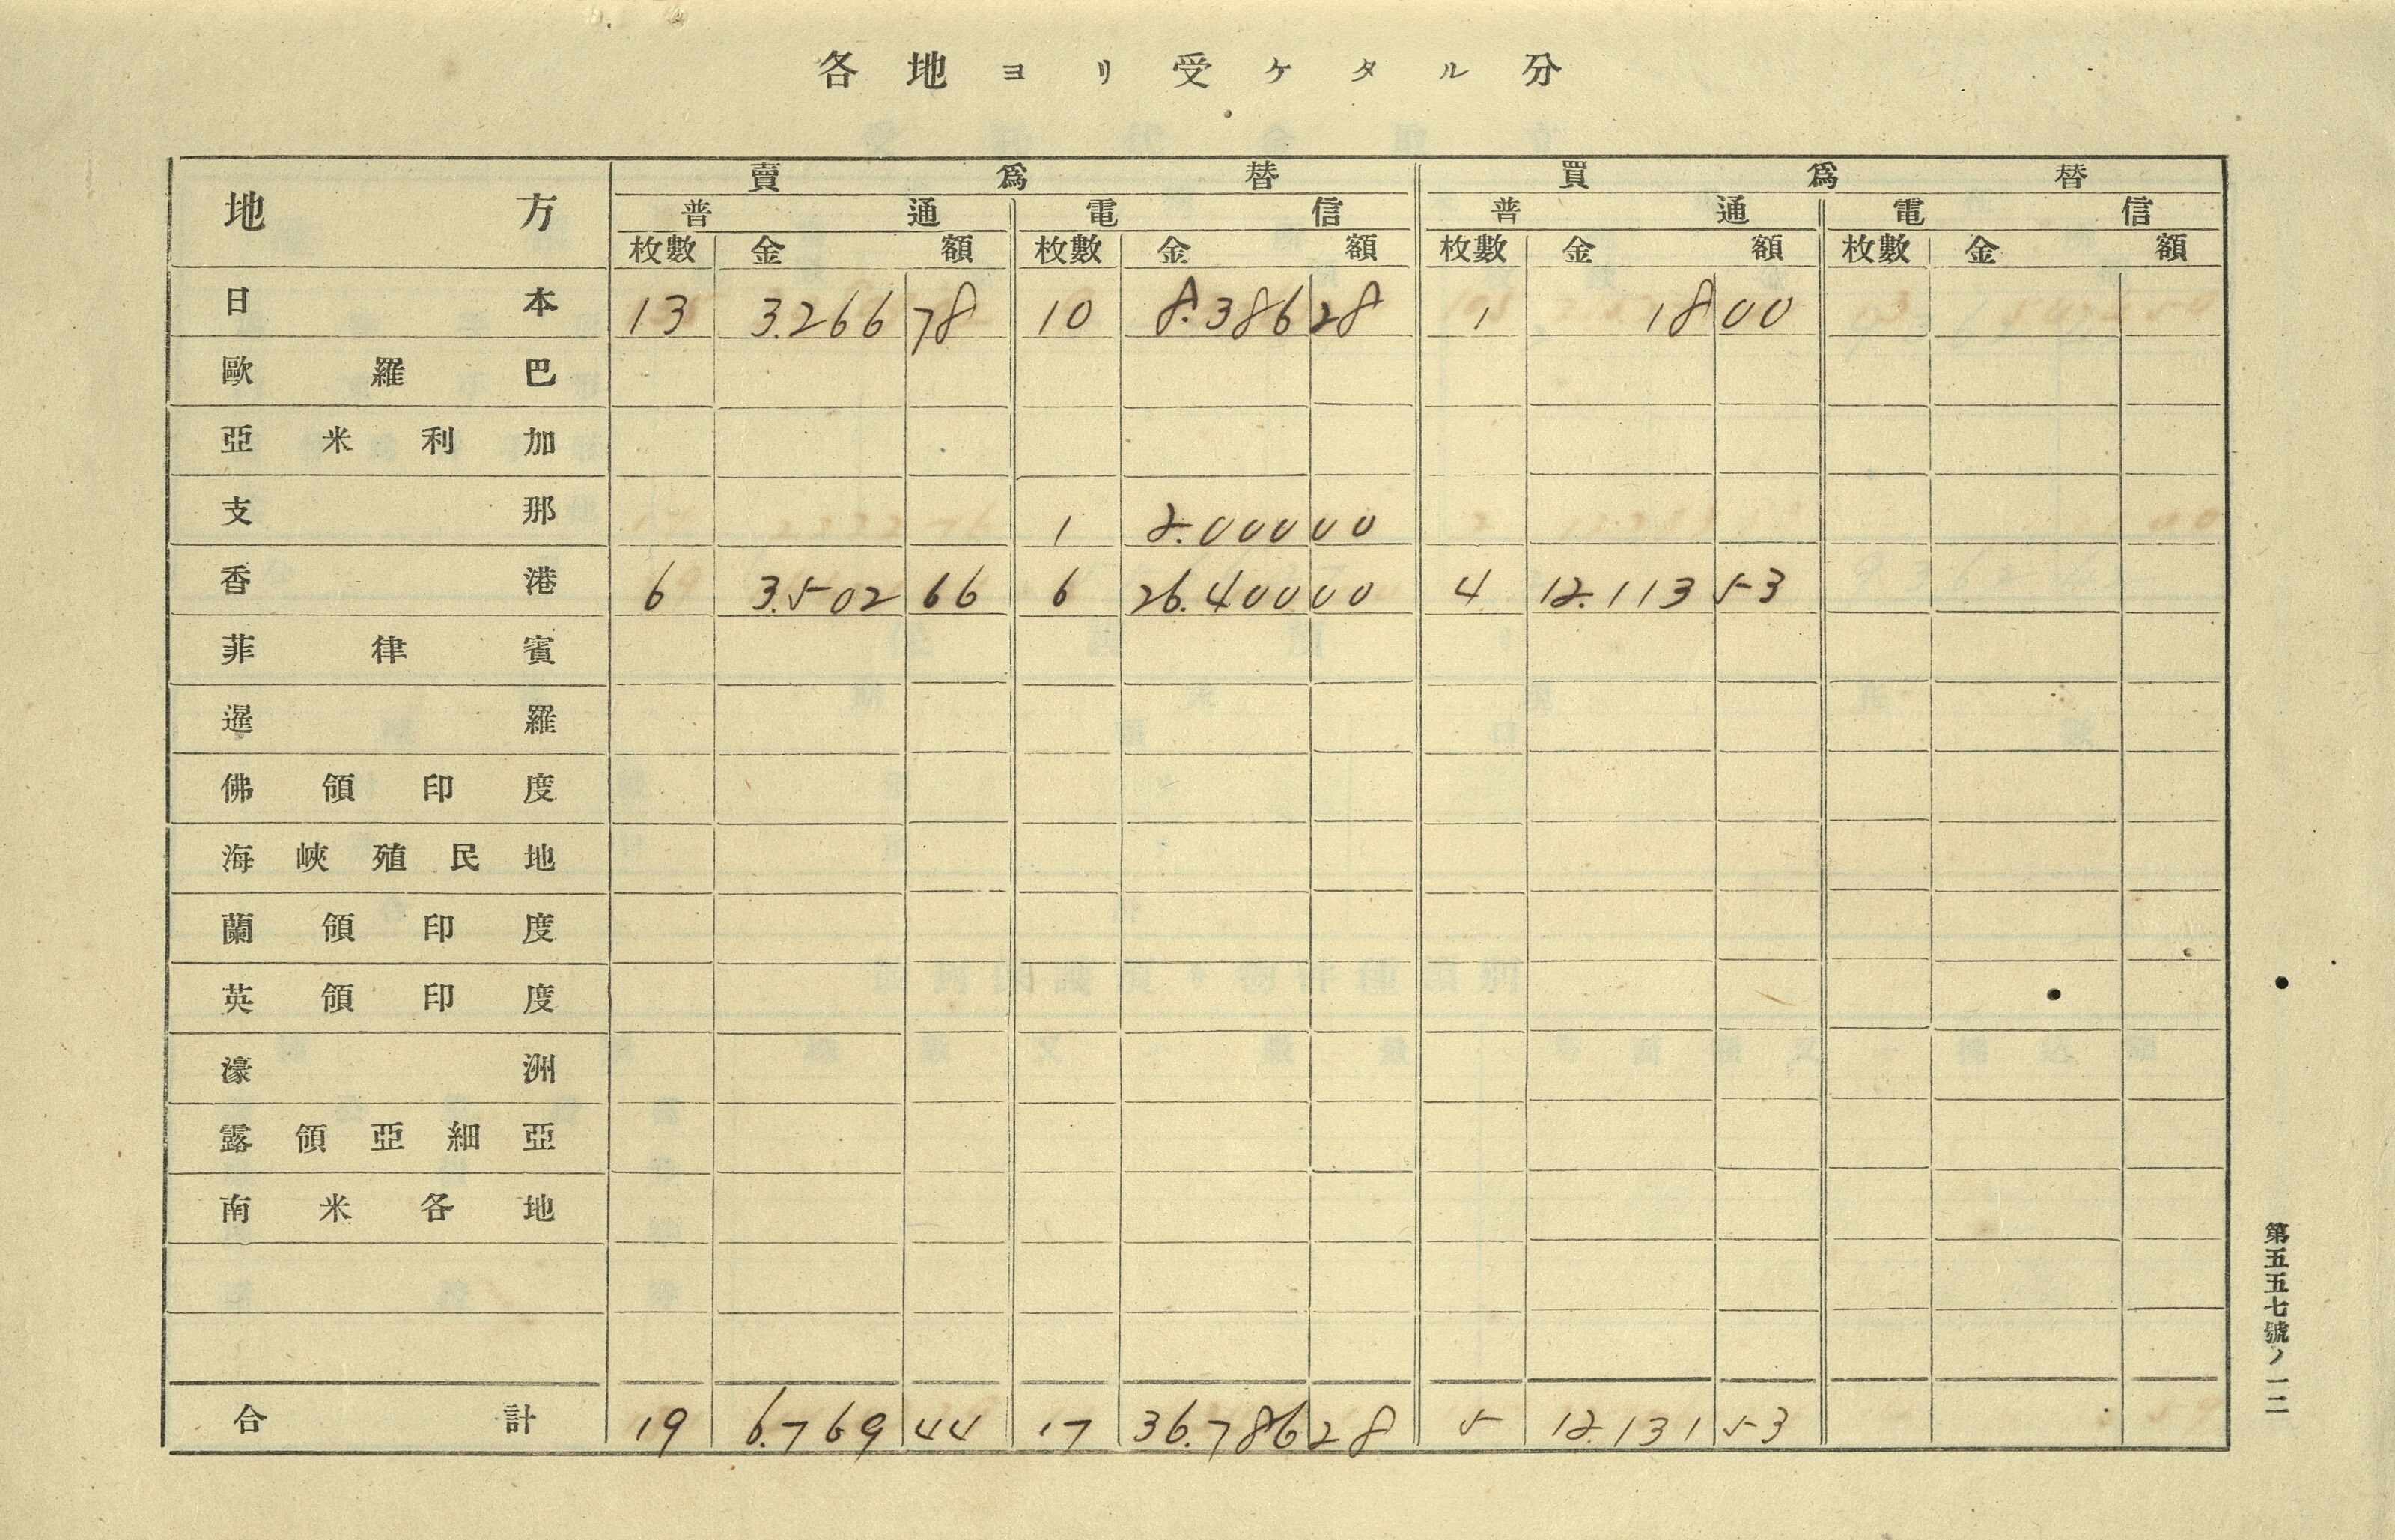 各地ヨリ受ケタル分
地方 賣爲替 買爲替
普通 電信 普通 電信
枚數 金額 枚數 金額 枚數 金額 枚數 金額
日本 13 3.266 78 10 8.386 28 1 18 00
歐羅巴
亞米利加
支那 1 2.000 00
香港 6 3.502 66 6 26.400 00 4 12.113 53
菲律賓
暹羅
佛領印度
海峽殖民地
蘭領印度
英領印度
濠洲
露領亞細亞
南米各地
合計 19 6.769 44 17 36.786 28 5 12.131 53
第五五七號ノ一二